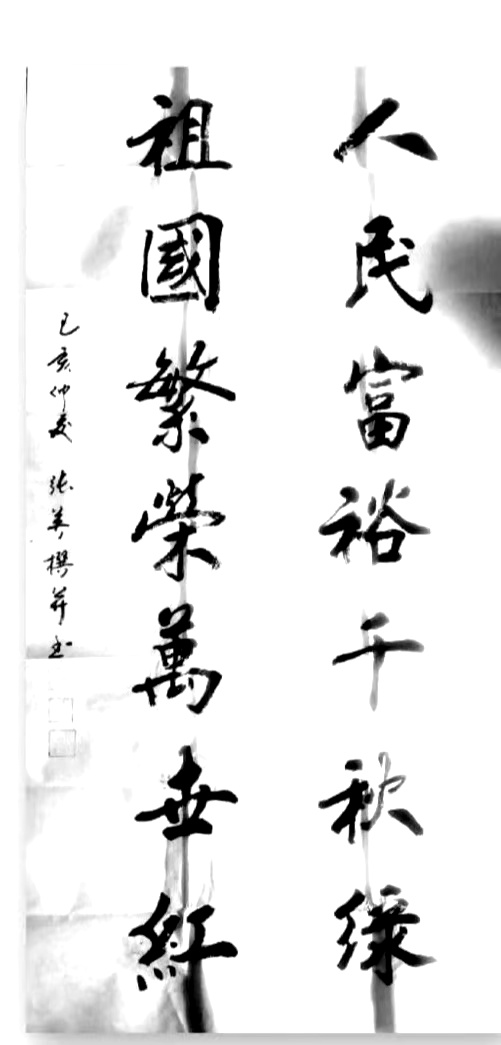 人民富裕千秋绿
祖國繁榮萬世紅
己亥仲夏 张英撰并书